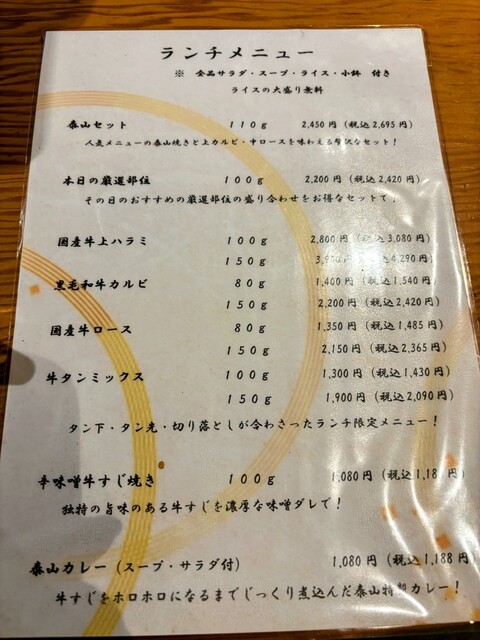 ランチメニュー
※ 全品サラダ・スープ・ライス・小鉢 付き
ライスの大盛り無料
泰山セット 110g 2,450円(税込2,695円)
人気メニューの泰山焼きと上カルビ・中ロースを味わえる贅沢なセット!
本日の厳選部位 100g 2,200円(税込2,420円)
その日のおすすめの厳選部位の盛り合わせをお得なセットで!
国産牛上ハラミ 100g 2,800円(税込3,080円)
150g 3,900円(税込4,290円)
黒毛和牛カルビ 80g 1,400円(税込1,540円)
150g 2,200円(税込2,420円)
国産牛ロース 80g 1,350円(税込1,485円)
150g 2,150円(税込2,365円)
牛タンミックス 100g 1,300円(税込1,430円)
150g 1,900円(税込2,090円)
タン下・タン先・切り落としが合わさったランチ限定メニュー!
辛味噌牛すじ焼き 100g 1,080円(税込1,188円)
独特の旨味のある牛すじを濃厚な味噌ダレで!
泰山カレー(スープ・サラダ付) 1,080円(税込1,188円)
牛すじをホロホロになるまでじっくり煮込んだ泰山特製カレー!